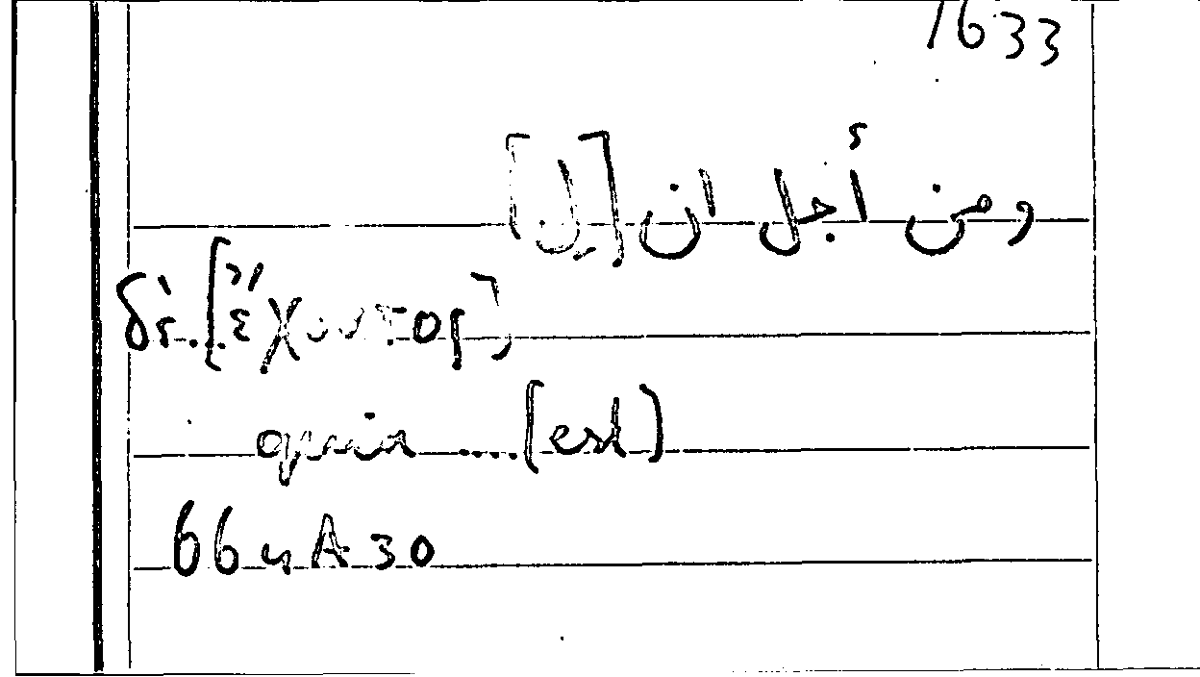 1633
ومن أجل ان [ل]
δι' [ἔχοντος]
quia .... (est)
664 A 30